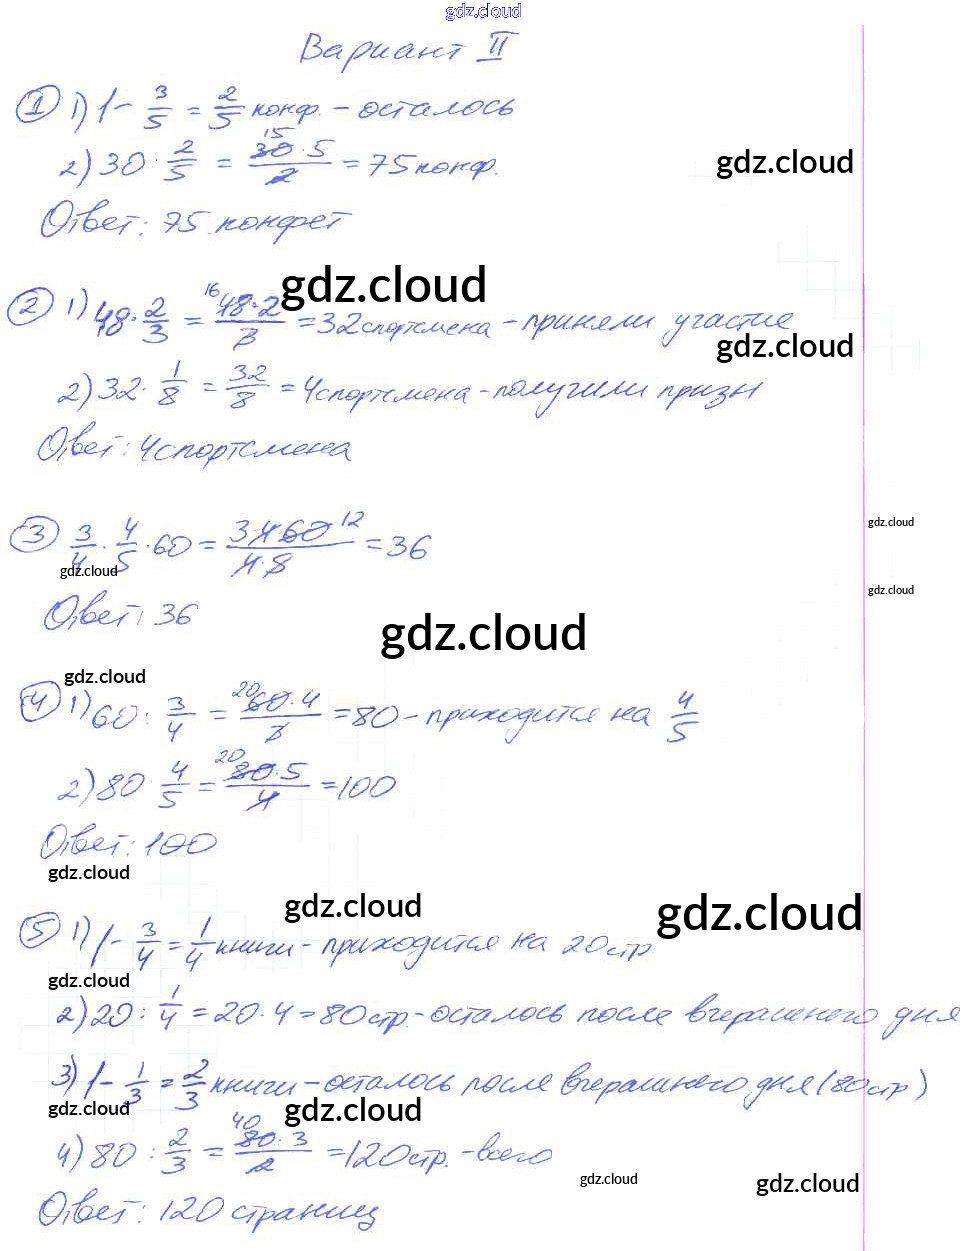 gdz.cloud
Вариант II
① 1) 1 - 3/5 = 2/5 конф. - осталось
2) 30 : 2/5 = 30 · 5 / 2 (15) = 75 конф.
gdz.cloud
Ответ: 75 конфет
gdz.cloud
② 1) 48 · 2/3 = 48 · 2 / 3 (16) = 32 спортсмена - приняли участие
gdz.cloud
2) 32 · 1/8 = 32/8 = 4 спортсмена - получили призы
Ответ: 4 спортсмена
gdz.cloud
③ 3/4 · 4/5 · 60 = 3 · 4 · 60 / 4 · 5 (12) = 36
gdz.cloud
gdz.cloud
Ответ: 36
gdz.cloud
gdz.cloud
④ 1) 60 : 3/4 = 60 · 4 / 3 (20) = 80 - приходится на 4/5
2) 80 : 4/5 = 80 · 5 / 4 (20) = 100
Ответ: 100
gdz.cloud
gdz.cloud
gdz.cloud
⑤ 1) 1 - 3/4 = 1/4 книги - приходится на 20 стр
gdz.cloud
2) 20 : 1/4 = 20 · 4 = 80 стр. - осталось после вчерашнего дня
3) 1 - 1/3 = 2/3 книги - осталось после вчерашнего дня (80 стр)
gdz.cloud
gdz.cloud
4) 80 : 2/3 = 80 · 3 / 2 (40) = 120 стр. - всего
gdz.cloud
gdz.cloud
Ответ: 120 страниц